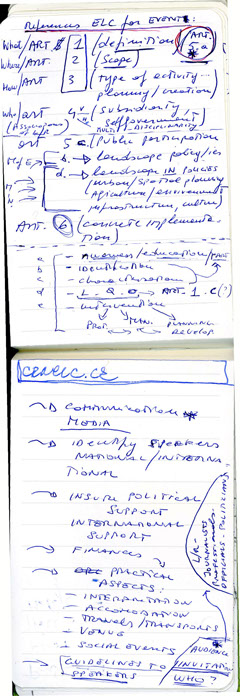 References ELC for EVENTS:
What/ART. 1 (definition) ART. 5 a
Where/ART 2 (scope)
How/ART 3 (type of activity...
planning/creation)
who/ART 4 (subsidiarity
selfgovernment
MULTI-DISCIPLINARITY
ART 5 c. (Public participation
b. → landscape policy/ies
d. → landscape IN POLICIES
/urban/spatial, planning
Agricultural/environment
infrastructure, culture)
ART. 6 (concrete implementa-
tion)
a - Awareness/education/
b - identification
c - characterisation
d - L. Q. O. - ART 1.c(?)
e - intervention
PROT. MAN. PLANNING
DEVELOP.
→ COMMUNICATION *
MEDIA
→ IDENTIFY SPEAKERS
NATIONAL/INTERNA
TIONAL
→ INSURE POLITICAL
SUPPORT
INTERNATIONAL
SUPPORT
→ FINANCES
→ PRACTICAL
ASPECTS:
- INTERPRETATION
- ACCOMODATION
- TRAVELS/TRANSPORTS
- VENUE
- SOCIAL EVENTS
→ GUIDELINES TO
SPEAKERS
AUDIENCE
INVITATION
WHO?
L/R-
JOURNALISTS
PROFESSIONALS
OFFICIALS POLITICIANS